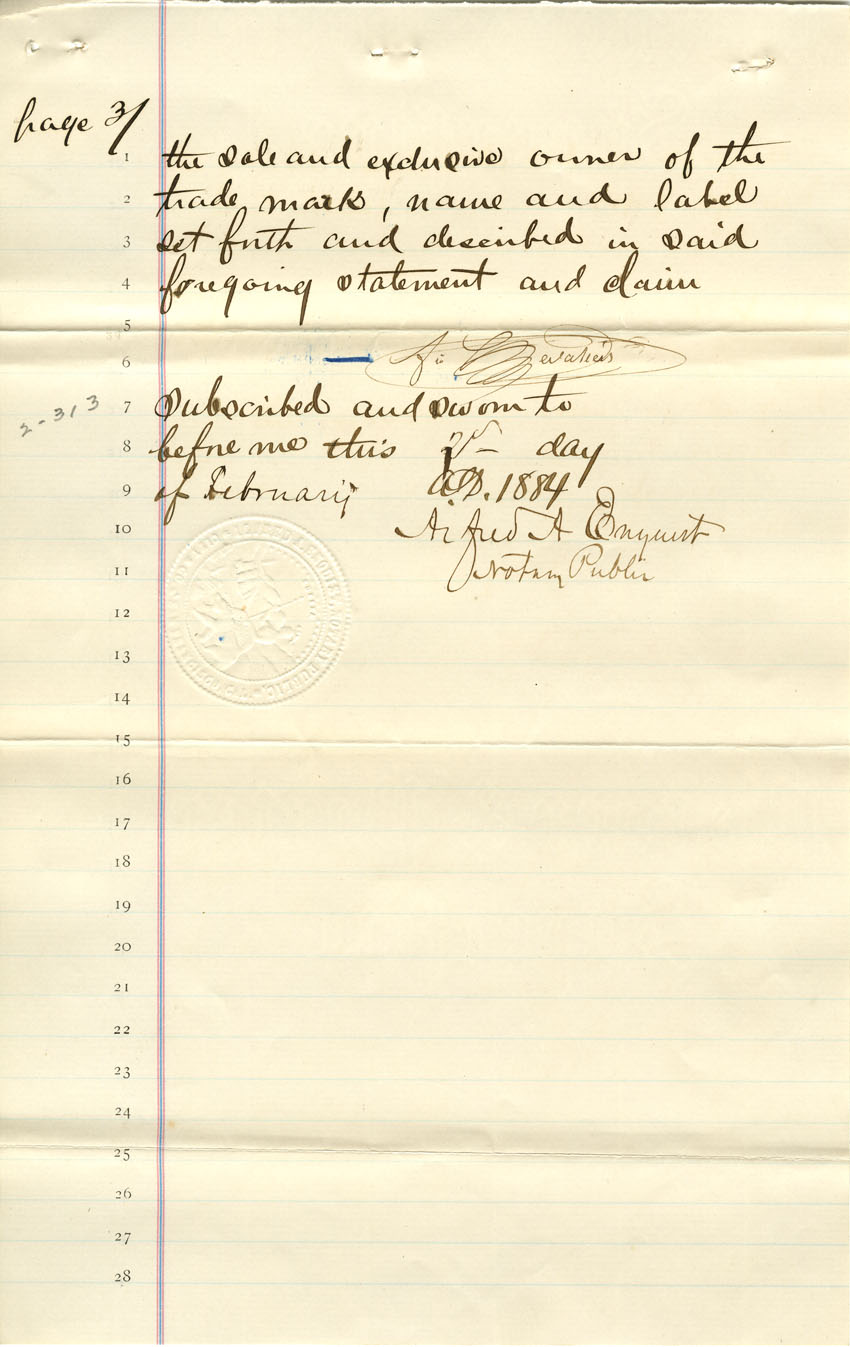 page 3/
1 the sole and exclusive owner of the
2 trade mark, name and label
3 set forth and described in said
4 foregoing statement and claim
5
6
2-313
7 subscribed and sworn to
8 before me this day
9 of February A.D. 1884
10 Alfred A Enquist
11 Notary Public
12
13
14
15
16
17
18
19
20
21
22
23
24
25
26
27
28